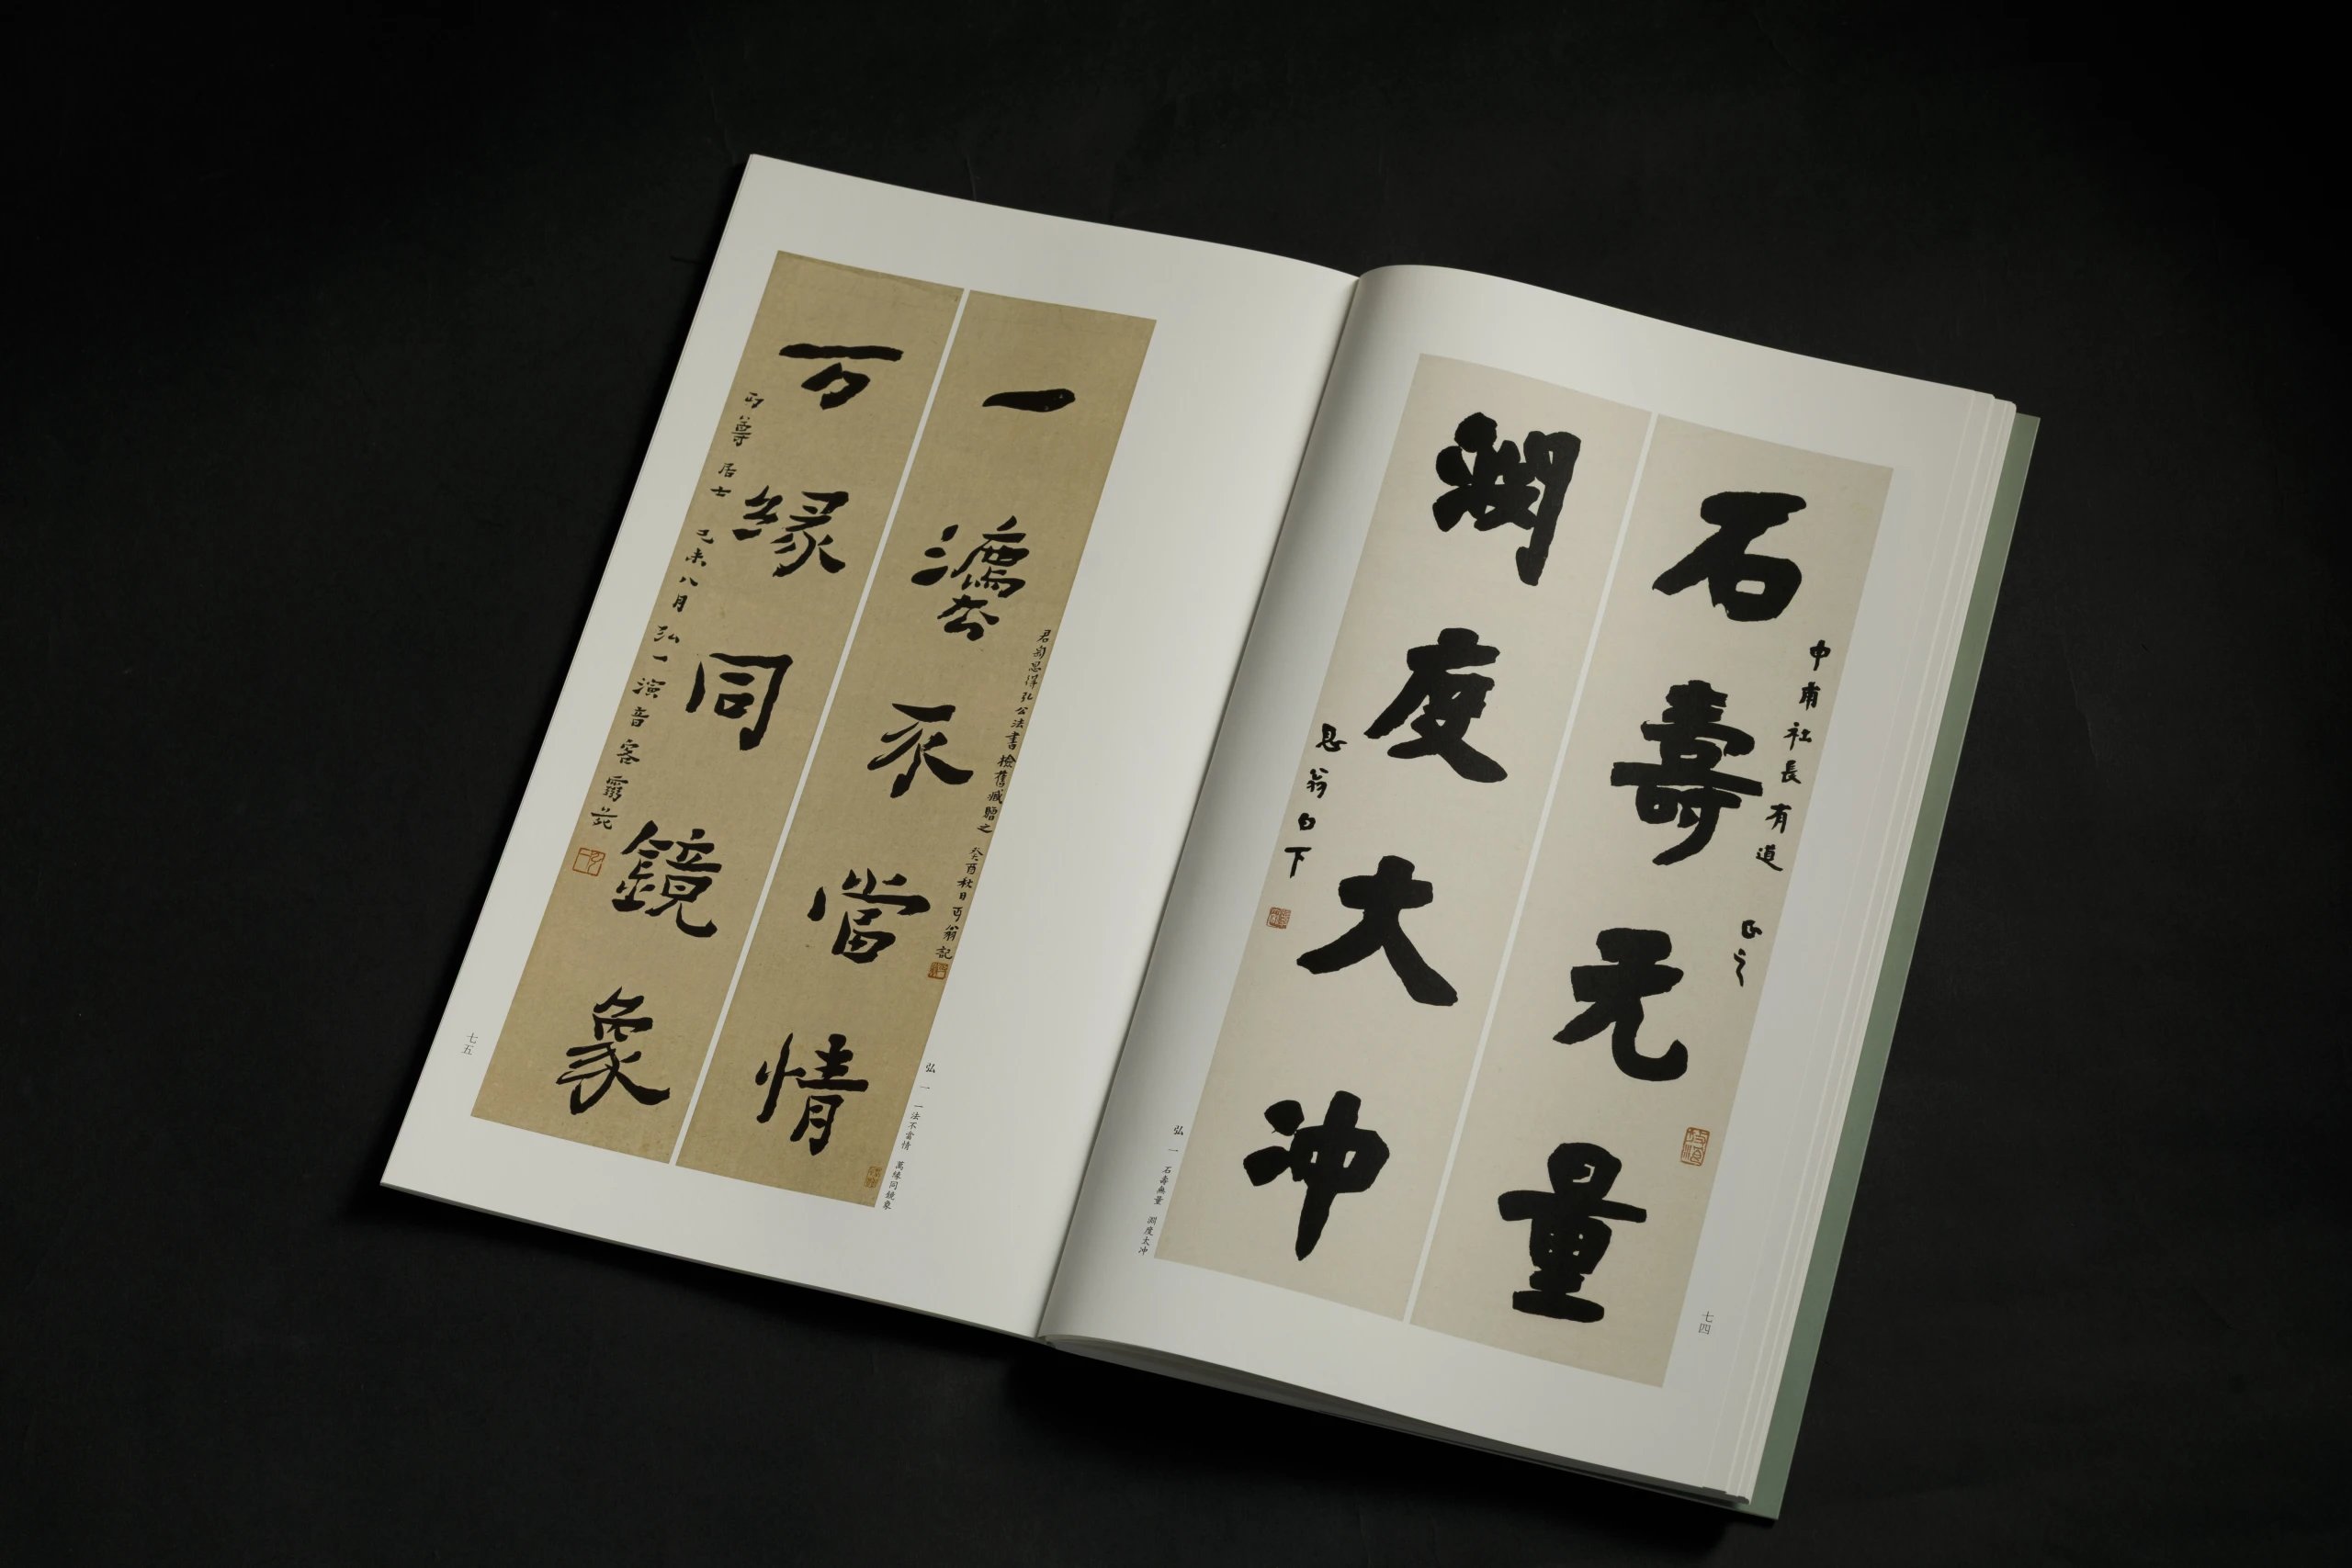 中甫社長有道 正之
石壽无量
淵度大冲
息翁白下
弘一 石壽無量 淵度太冲
七四
君匋思得弘公法書檢舊臧贈之 癸酉秋日丏翁記
一灋不當情
万緣同鏡象
丏尊居士 己未八月弘一演音客
弘一 一法不當情 萬緣同鏡象
七五